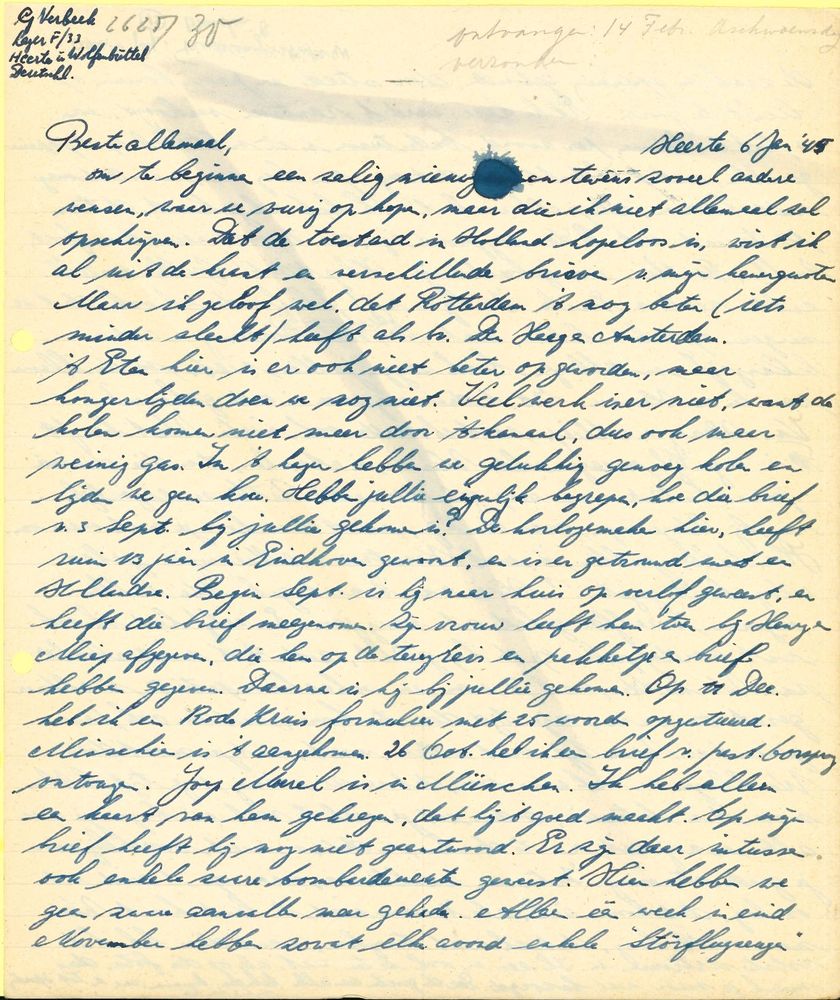 G Verbeek
Lager F/33
Heerte ü Wolfenbüttel
Deutschl.
2625/ 35
ontvangen: 14 Febr. Aschwoensdag
verzonden:
Beste allemaal, Heerte 6 Jan '45
om te beginnen een zalig nieuw en tevens zoveel andere
wensen, waar we vurig op hopen, maar die ik niet allemaal zal
opschrijven. Dat de toestand in Holland hopeloos is, wist ik
al uit de krant en verschillende brieven v. mijn kamergenoten
Maar ik geloof wel, dat Rotterdam 't nog beter (iets
minder slecht) heeft als bv. Den Haag en Amsterdam.
't Eten hier is er ook niet beter op geworden, maar
hongerlijden doen we nog niet. Veel werk is er niet, want de
kolen komen niet meer door 't kanaal, dus ook maar
weinig gas. In 't lager hebben we gelukkig genoeg kolen en
lijden we geen kou. Hebben jullie eigenlijk begrepen, hoe die brief
v. 3 Sept. bij jullie gekomen is? De horlogemaker hier, heeft
ruim 13 jaar in Eindhoven gewoont, en is er getrouwd met een
Hollandse. Begin Sept. is hij naar huis op verlof geweest, en
heeft die brief meegenomen. Zijn vrouw heeft hem toen bij Henny en
Miep afgegeven, die hem op de terugreis en pakketje en brief
hebben gegeven. Daarna is hij bij jullie gekomen. Op Dec.
heb ik een Rode Kruis formulier met 25 woorden opgestuurd.
Misschien is 't aangekomen. 26 Oct. heb ik een brief v. past.
ontvangen. Joep Merel is in München. Ik heb alleen
een kaart van hem gekregen, dat hij 't goed maakt. Op mijn
brief heeft hij nog niet geantwoord. Er zijn daar intussen
ook enkele zware bombardementen geweest. Hier hebben we
geen zware aanvallen meer gehad. Alleen één week in eind
November hebben zowat elke avond enkele "Störflugzeuge"